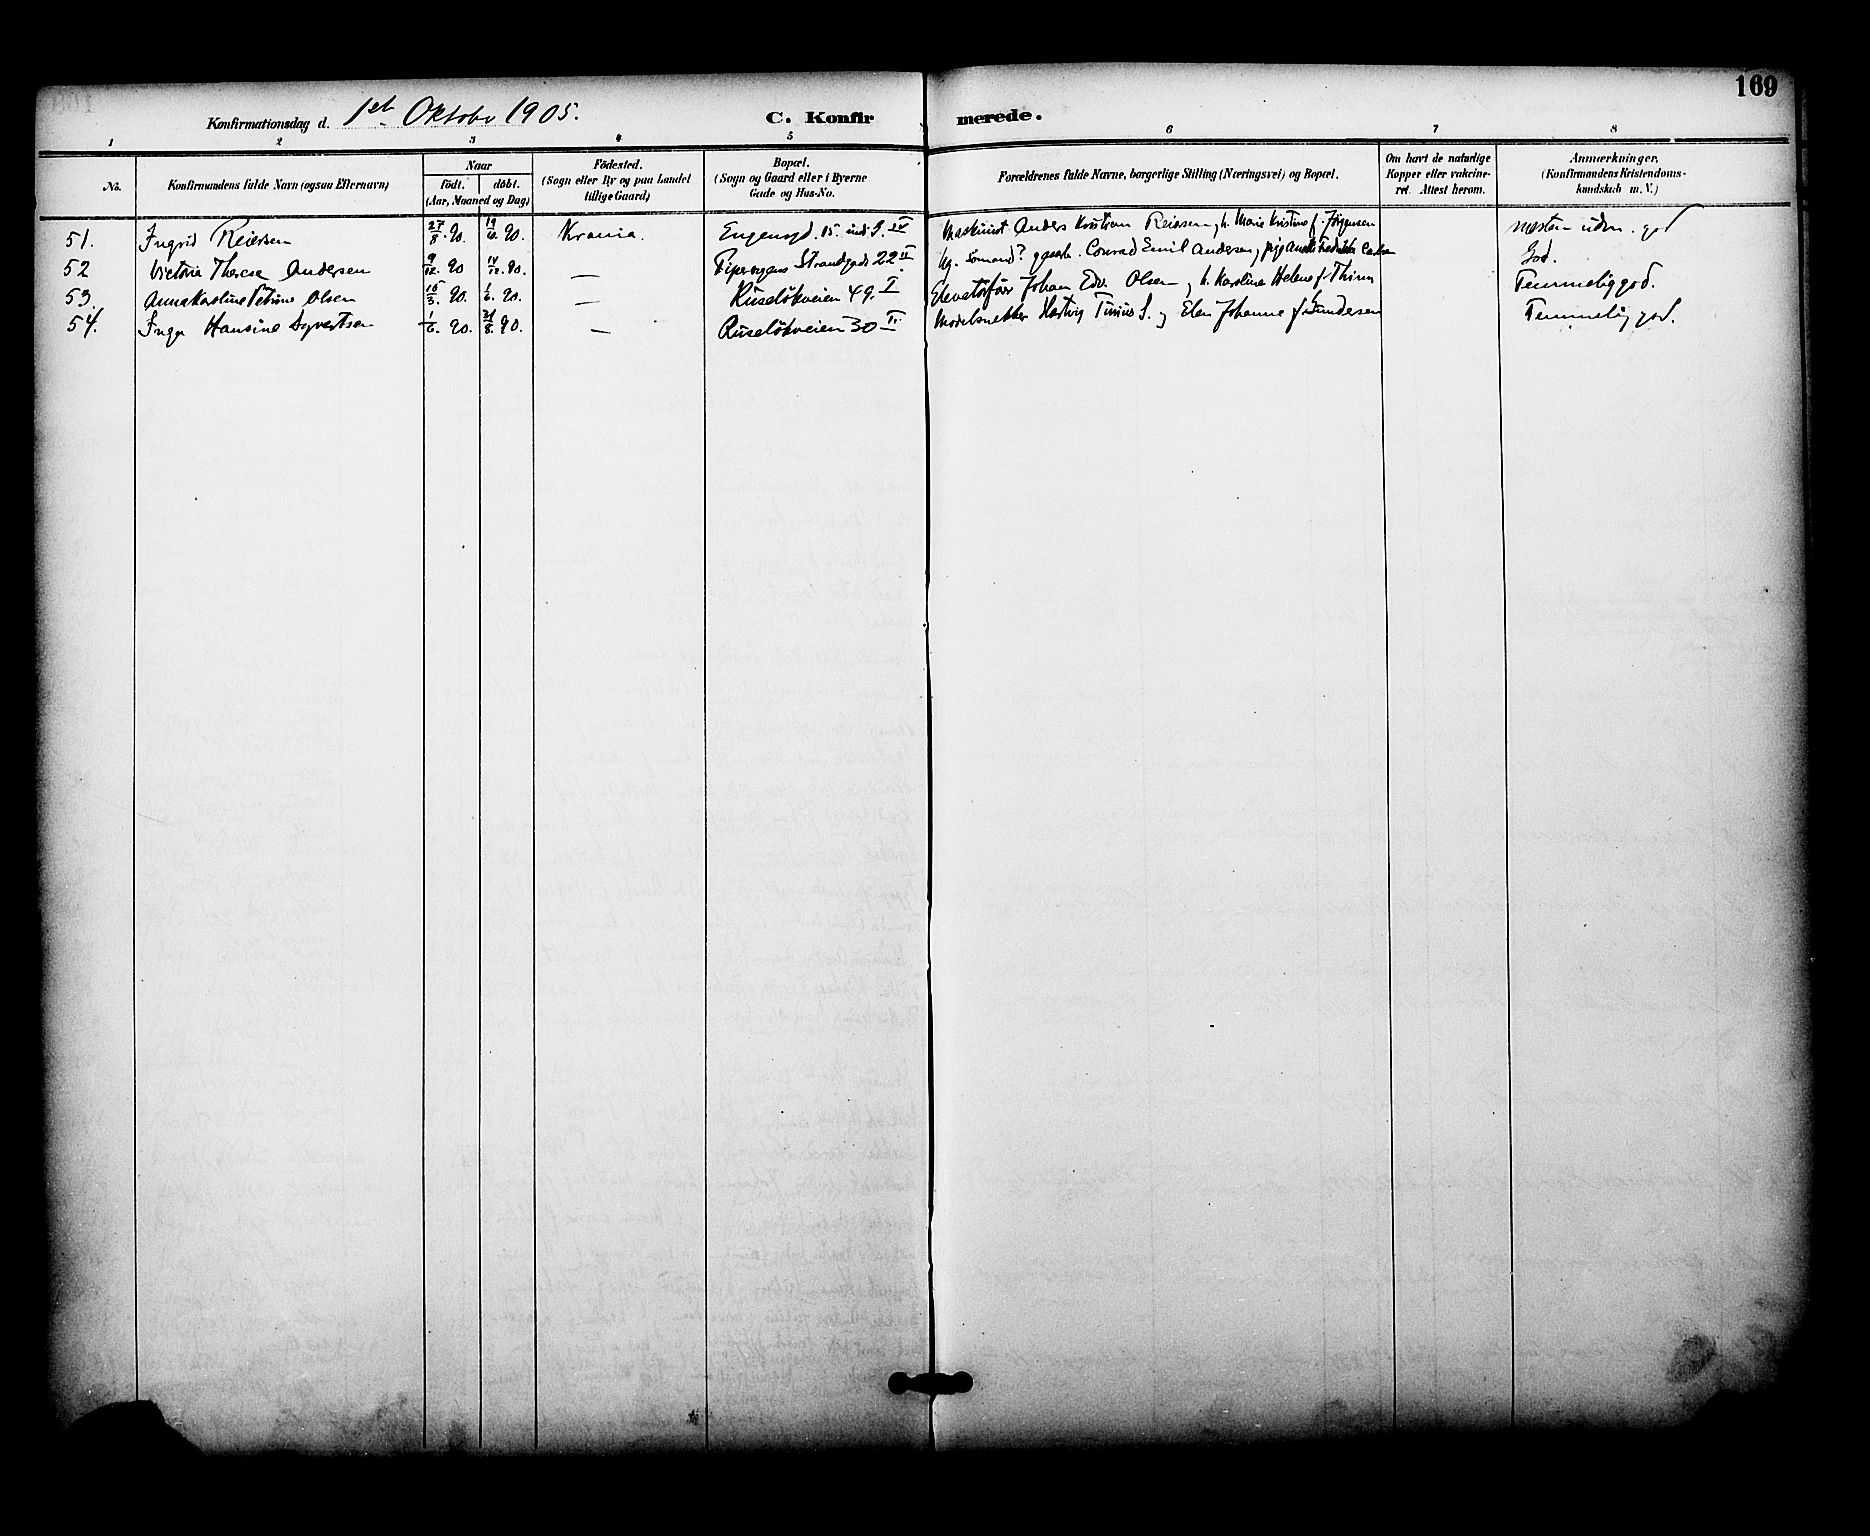 169
Konfirmationsdag d. 1st Oktober 1905. C. Konfirmerede.
1 2 3 4 5 6 7 8
No. Konfirmandens fulde Navn (ogsaa Efternavn) Naar født. døbt. (Aar, Maaned og Dag) Fødested. (Sogn eller By og paa Landet tillige Gaard) Bopæl. (Sogn og Gaard eller i Byerne Gade og Hus-No. Forældrenes fulde Navne, borgerlige Stilling (Næringsvei) og Bopæl. Om havt de naturlige Kopper eller vaccineret. Attest herom. Anmærkninger, (Konfirmandens Kristendomskundskab m. V.)
51. Ingrid Reiersen 27/8. 90. 90. Krania. Engensgd. 15. IV Maskinist Anders Kristian Reiersen, h. Marie Kristine f. Jörgensen næsten udm. god
52 Victoria Therese Andersen 9/12. 90 14/12. 90. — Pipervigens Strandgade 22 II Ug. Sömand? Conrad Emil Andersen, pige God.
53. Anna Karoline Petrine Olsen 15/3. 90. 1/6. 90. — Ruselökveien 49. I Johan Edv. Olsen og h. Karoline Helene f. Temmelig god.
54. Inga Hansine Syvertsen 1/6. 90. 31/8. 90. — Ruselökveien 30 II Modelsnekker Hartvig S. og Elen Johanne f. Gundersen Temmelig god.